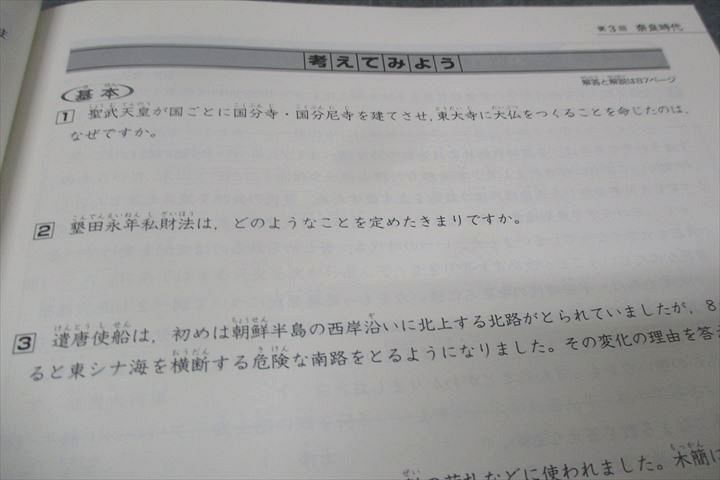 第3回 奈良時代
考えてみよう
解答と解説は87ページ
基本
1 聖武天皇が国ごとに国分寺・国分尼寺を建てさせ,東大寺に大仏をつくることを命じたのは,
なぜですか。
2 墾田永年私財法は,どのようなことを定めたきまりですか。
3 遣唐使船は,初めは朝鮮半島の西岸沿いに北上する北路がとられていましたが,8
ると東シナ海を横断する危険な南路をとるようになりました。その変化の理由を答
などに使われました。木簡に